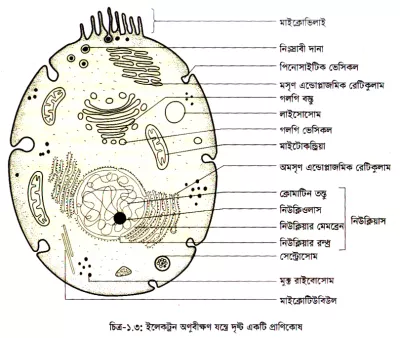 মাইক্রোভিলাই
নিঃস্রাবী দানা
পিনোসাইটিক ভেসিকল
মসৃণ এন্ডোপ্লাজমিক রেটিকুলাম
গলগি বস্তু
লাইসোসোম
গলগি ভেসিকল
মাইটোকন্ড্রিয়া
অমসৃণ এন্ডোপ্লাজমিক রেটিকুলাম
ক্রোমাটিন তন্তু
নিউক্লিওলাস
নিউক্লিয়ার মেমব্রেন
নিউক্লিয়াস
নিউক্লিয়ার রন্ধ্র
সেন্ট্রোসোম
মুক্ত রাইবোসোম
মাইক্রোটিউবিউল
চিত্র-১.৩: ইলেকট্রন অণুবীক্ষণ যন্ত্রে দৃষ্ট একটি প্রাণিকোষ